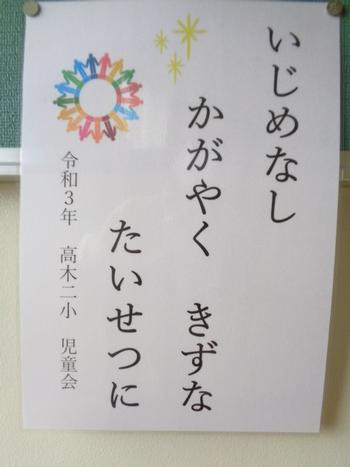 いじめなし
かがやく　きずな
たいせつに
令和3年　高木二小　児童会